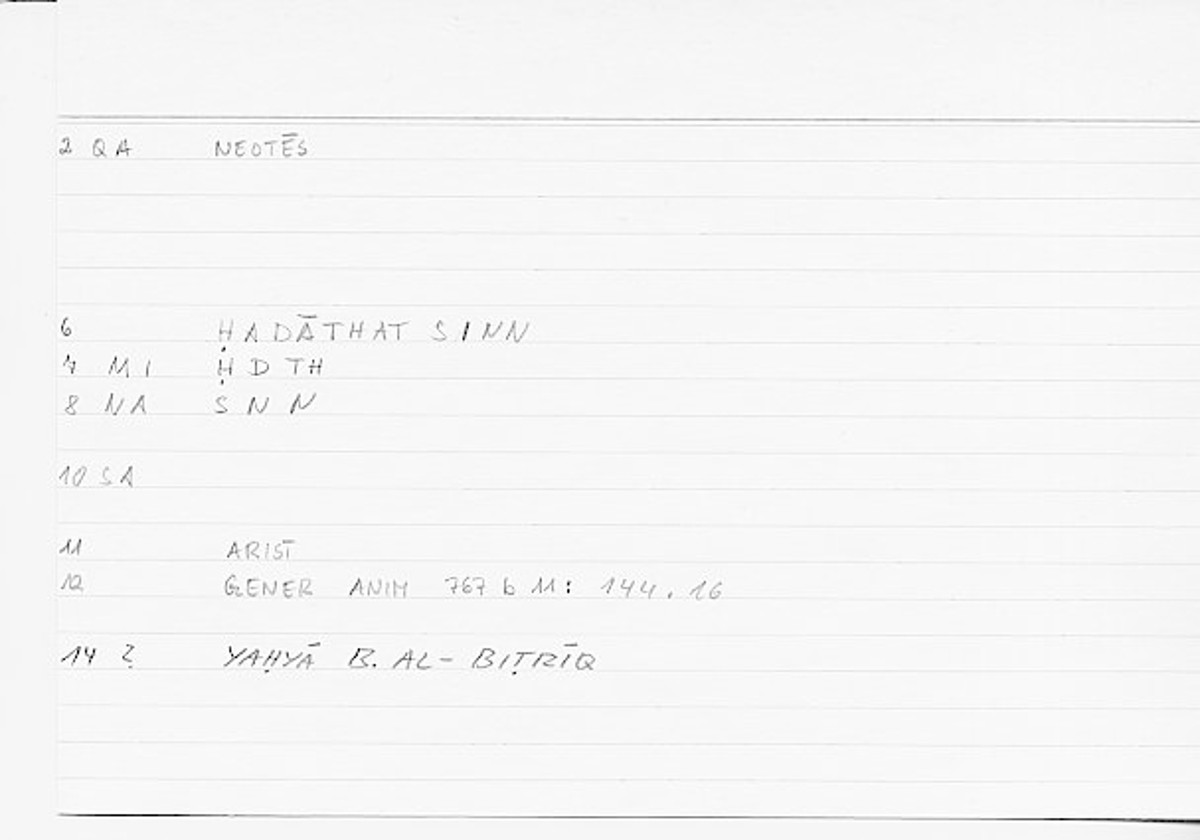 2 QA NEOTĒS
6 ḤADĀTHAT SINN
7 MI ḤDTH
8 NA SNN
10 SA
11 ARIST
12 GENER ANIM 767 b 11: 144.16
14 ? YAḤYĀ B. AL-BIṬRĪQ